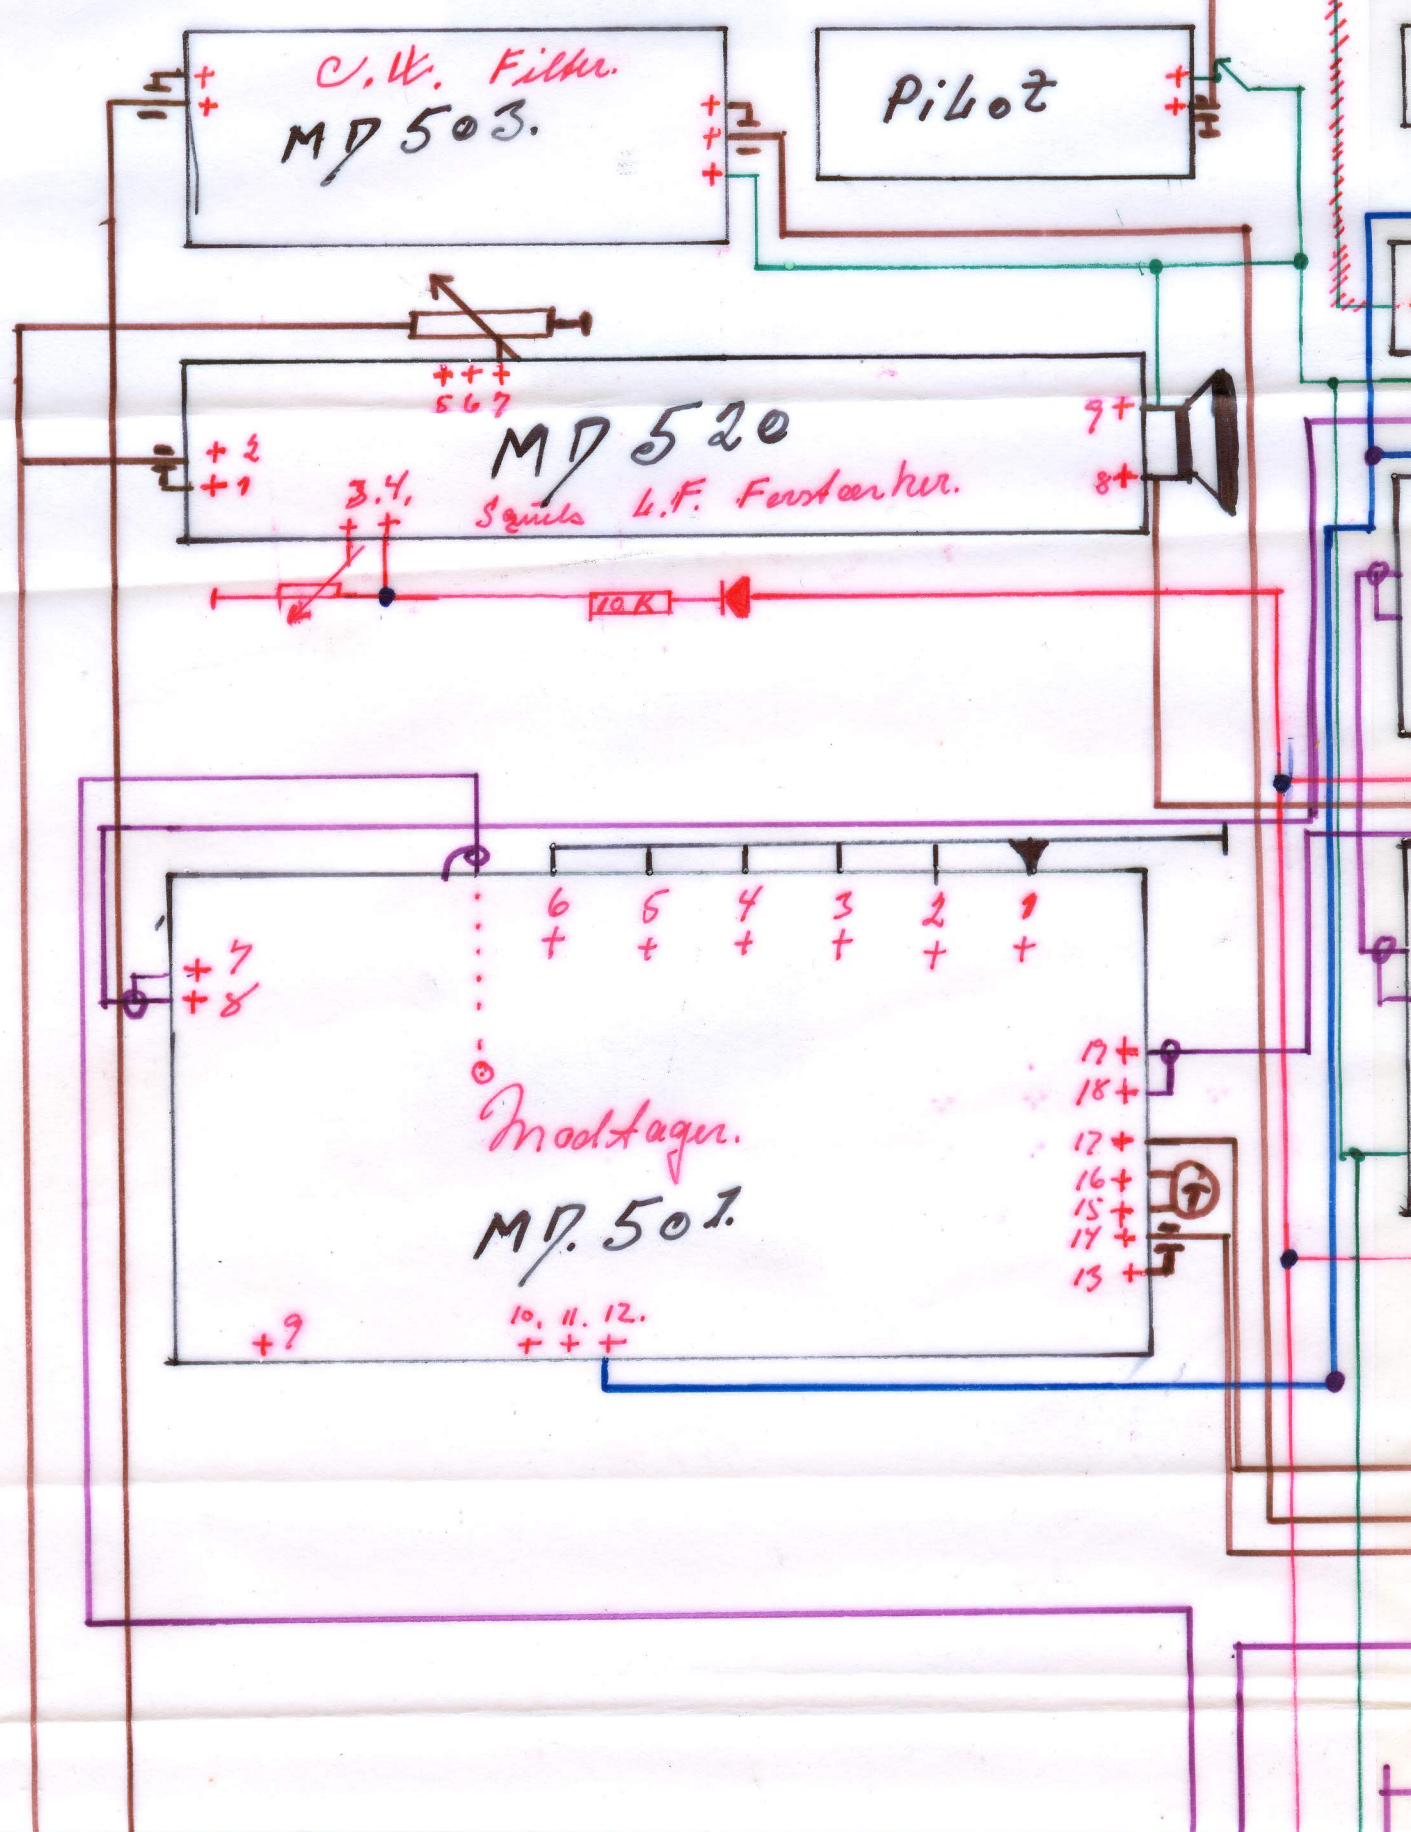 C.W. Filter.
MD 503.
PiLoT
5 6 7
MD 520
2
1
3. 4.
L.F. Forstærker.
9
8
10 K
6 5 4 3 2 1
7
8
19
18
17
16
15
14
13
T
Modtager.
MD. 501.
9
10. 11. 12.